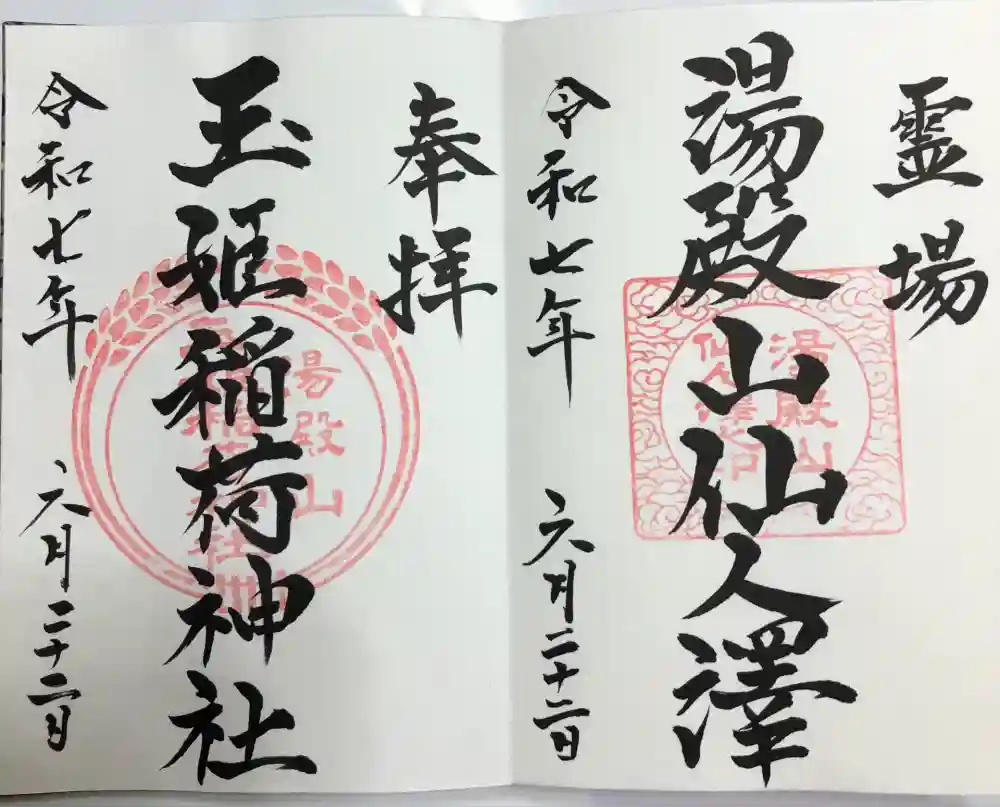 霊場
湯殿山仙人澤
湯殿山
令和七年 六月二十二日
奉拝
玉姫稲荷神社
湯殿山
令和七年 六月二十二日